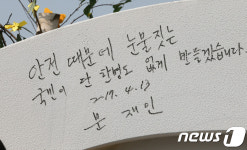 안전 때문에 눈물짓는
국민이 단 한명도 없게 만들겠습니다.
2017. 4. 13
문재인
news1